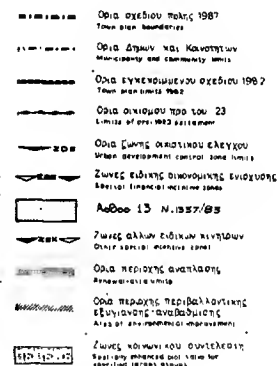 Ορια σχεδιου πολης 1987
Town plan boundaries
Ορια Δημων και Κοινοτητων
Municipality and community limits
Ορια εγκεκριμμενου σχεδιου 1982
Town plan limits 1982
Ορια οικισμου προ του 23
Limits of pre-1923 settlement
ΖΟΕ
Ορια ζωνης οικιστικου ελεγχου
Urban development control zone limits
Ζωνες ειδικης οικονομικης ενισχυσης
Special financial incentive zones
Αρθρο 13 Ν.1337/83
ΖΕΚ
Ζωνες αλλων ειδικων κινητρων
Other special incentive zones
Ορια περιοχης αναπλασης
Renewal area limits
Ορια περιοχης περιβαλλοντικης
εξυγιανσης-αναβαθμισης
Area of environmental improvement
Ζωνες κοινωνικου συντελεστη
Socially enhanced plot ratio for